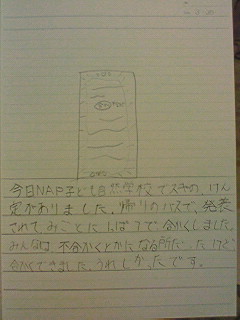 今日NAP子ども自然学校でスキの、けん
定がありました。帰りのバスで、発表
されてみごとにいっぱつで合かくしました。
みんなは 不合かくとかになる所だったけど
合かくできました。うれしかったです。